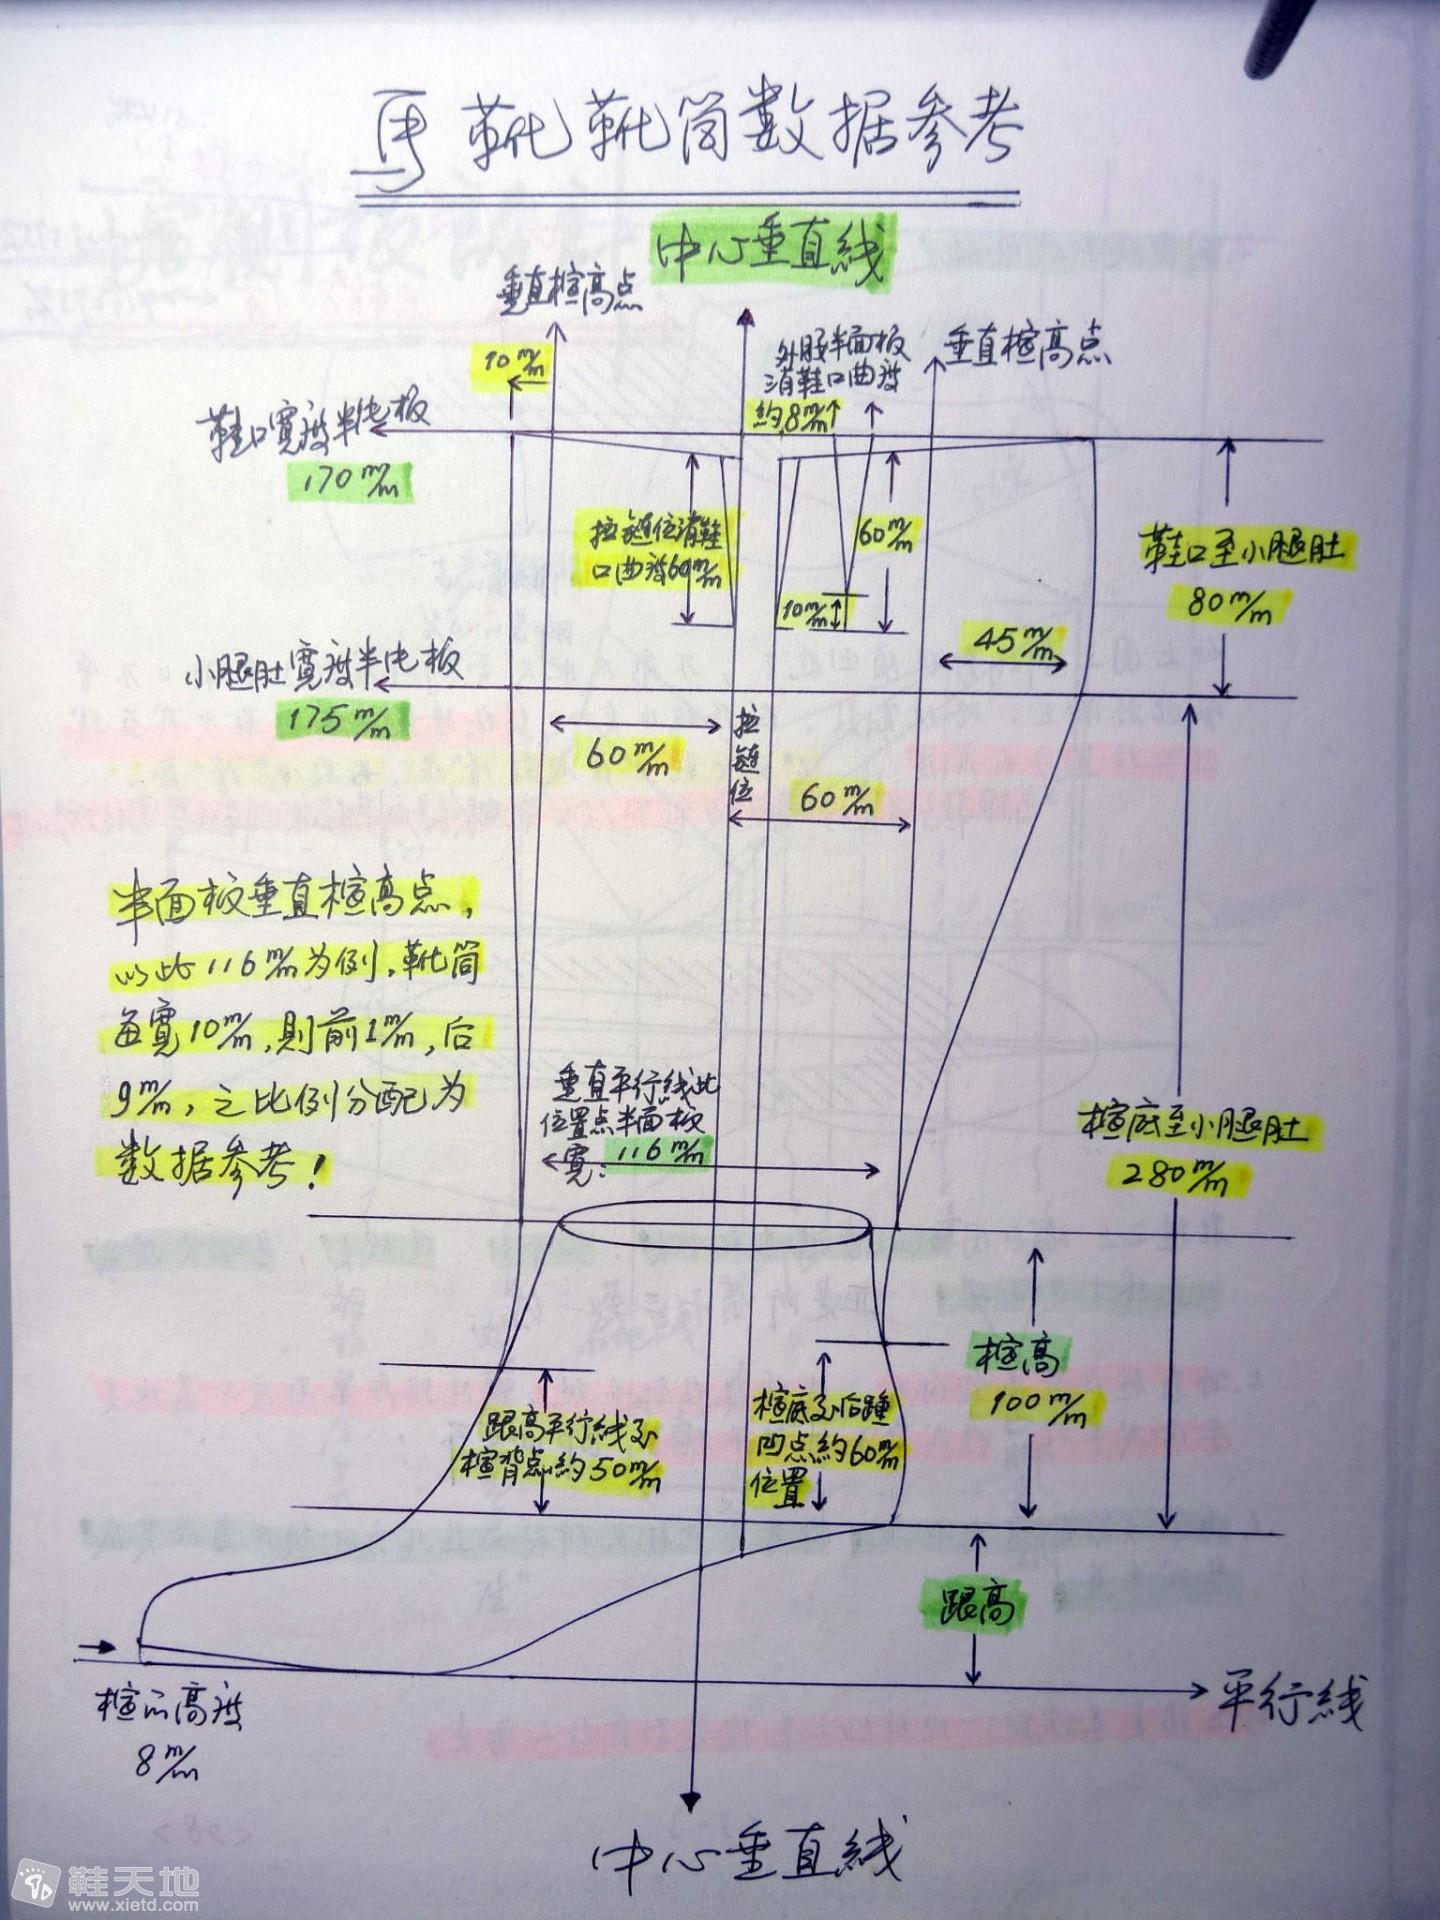 馬靴靴筒数据参考
中心垂直線
垂直楦高点
10m/m
外腰半面板
消鞋口曲度
約8m/m
垂直楦高点
鞋口寬度半面板
170m/m
拉鏈位消鞋
口曲度60m/m
60m/m
10m/m
鞋口至小腿肚
80m/m
45m/m
小腿肚寬度半面板
175m/m
60m/m
拉
鏈
位
60m/m
半面板垂直楦高点,
以此116m/m为例,靴筒
每寬10m/m,則前1m/m,后
9m/m,之比例分配为
数据参考!
垂直平行线此
位置点半面板
寬:116m/m
楦底至小腿肚
280m/m
楦高
100m/m
跟高平行线至
楦背点約50m/m
楦底至后踵
凹点約60m/m
位置
跟高
平行線
高度
8m/m
中心垂直線
鞋天地
www.xietd.com